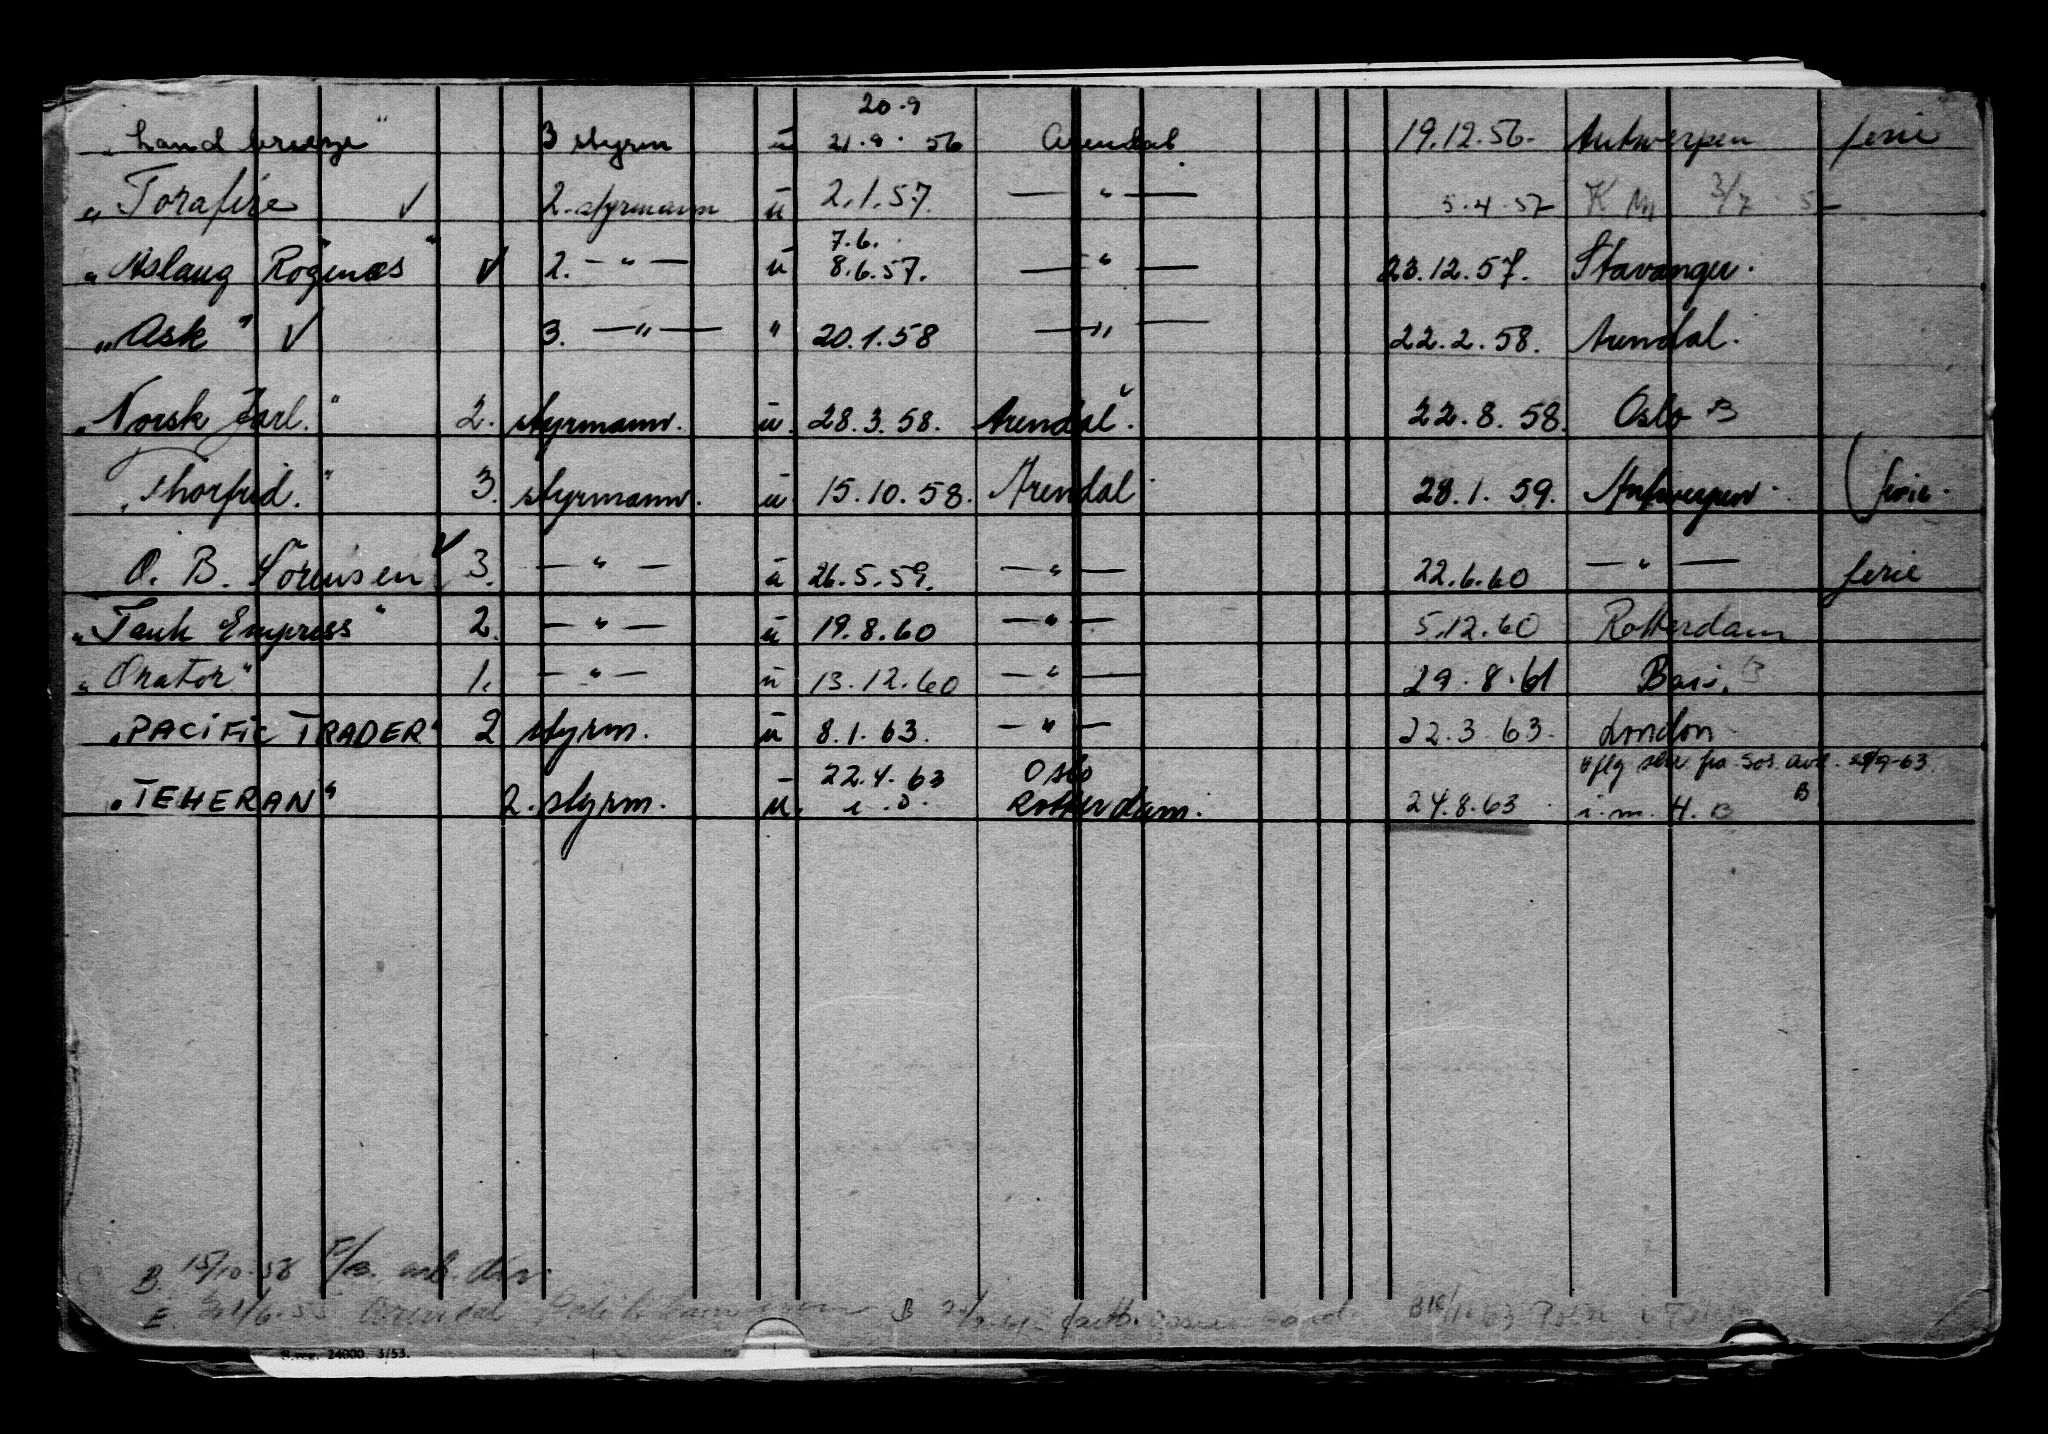 20.9
"Land breeze" 3 styrm u 21.9.56 Arendal 19.12.56. Antwerpen ferie
"Torafire ✓ 2. styrmann u 2.1.57. — " — 5.4.57 K M 3/7
7.6.
"Aslaug Rögenæs" ✓ 2. — " — u 8.6.57. — " — 23.12.57. Stavanger.
"Ask" ✓ 3. — " — " 20.1.58 — " — 22.2.58. Arendal.
"Norsk Jarl." 2. styrmann. u. 28.3.58. Arendal. 22.8.58. Oslo B
"Thorfrid." 3. styrmann. u. 15.10.58. Arendal 28.1.59. Antwerpen. (ferie.
O. B. Sörensen ✓ 3. — " — u 26.5.59. — " — 22.6.60 — " — ferie
"Tank Empress" 2. — " — u 19.8.60 — " — 5.12.60 Rotterdam
"Orator" 1. — " — u 13.12.60 — " — 29.8.61 Bari. B
"PACIFIC TRADER" 2 styrm. u 8.1.63. — " — 22.3.63. London
22.4.63 Oslo fra Sos. avd.
"TEHERAN" 2. styrm. u. Rotterdam. 24.8.63. i.m. H. B B
B. 15/10.58 arb. div.
E. Arendal B
24000. 3/53.